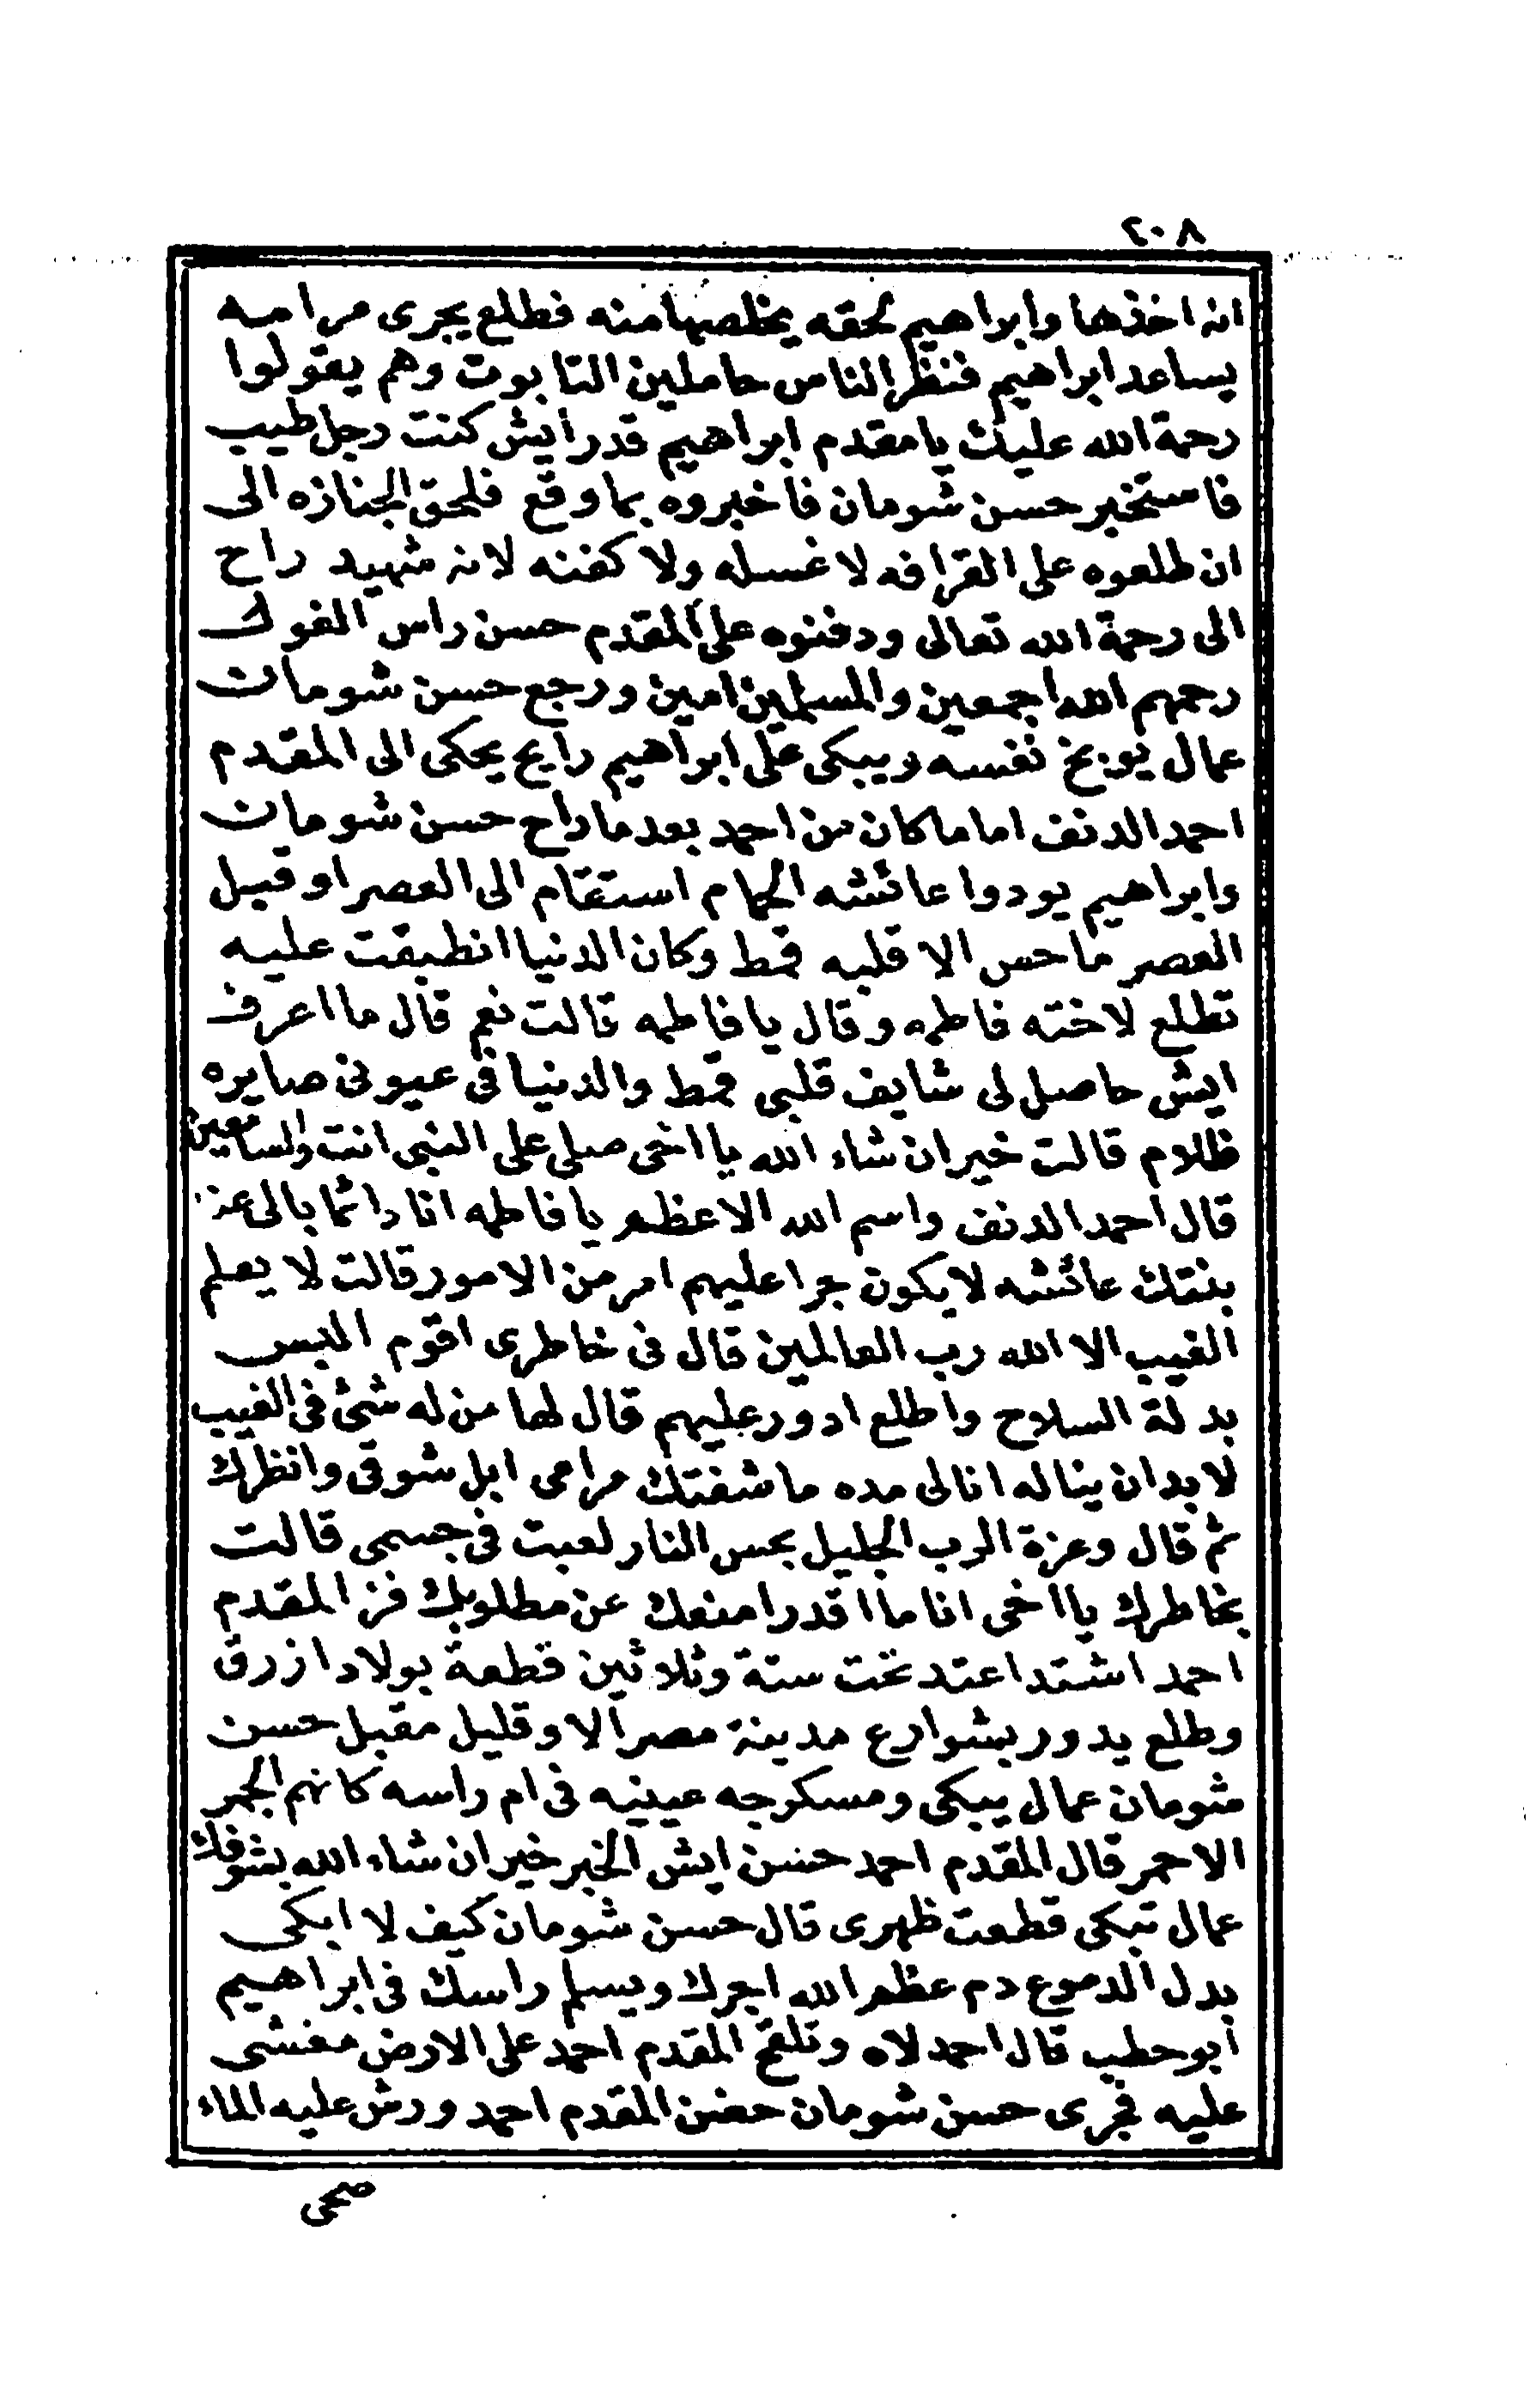 ٢٠٨
انه اخذها وابراهيم لحقه يخلصها منه فطلع يجرى مرامه
يساعد ابراهيم فنظر الناس حاملين التابوت وهم يقولوا
رحمة الله عليك يا مقدم ابراهيم قدر ايش كنت رجل طيب
فاستخبر حسن شومان فاخبروه بما وقع فلحق الجنازه الى
ان طلعوه على القرافه لا غسله ولا كفنه لانه شهيد راح
الى رحمة الله تعالى ودفنوه على المقدم حسن راس الغول
رحمهم الله اجمعين والمسلمين امين ورجع حسن شومان
عمال يوبخ نفسه ويبكى على ابراهيم رايح يحكى الى المقدم
احمد الدنف اما ما كان من احمد بعد ما راح حسن شومان
وابراهيم يودوا عائشه الحمام استقام الى العصر او قبل
العصر ما حس الا قلبه قمط وكان الدنيا انطبقت عليه
تطلع لاخته فاطمه وقال يا فاطمه قالت نعم قال ما اعرف
ايش حاصل لى شايف قلبى قمط والدنيا فى عيونى صايره
ظلام قالت خير ان شاء الله يا اخى صلى على النبى انت والسامعين
قال احمد الدنف واسم الله الاعظم يا فاطمه انا دائما بالى عند
بنتك عائشه لا يكون جرا عليهم امر من الامور قالت لا يعلم
الغيب الا الله رب العالمين قال فى خاطرى اقوم البس
بدلة السلاح واطلع ادور عليهم قال لها من له شئ فى الغيب
لا بد ان يناله انا لى مده ما شفتك مرامى ابل شوقى وانظرك
ثم قال وعزة الرب الجليل بحس النار لعبت فى جسمى قالت
بخاطرك يا اخى انا ما اقدر امنعك عن مطلوبك فز المقدم
احمد اشتد اعتد تخت ستة وثلاثين قطعة بولاد ازرق
وطلع يدور بشوارع مدينة مصر الا وقليل مقبل حسن
شومان عمال يبكى ومسكرجه عينيه فى ام راسه كانهم الجمر
الاحمر قال المقدم احمد حسن ايش الخبر خير ان شاء الله بشوفك
عمال تبكى قطعت ظهرى قال حسن شومان كيف لا ابكى
بدل الدموع دم عظم الله اجرك ويسلم راسك فى ابراهيم
ابو حطب قال احمد لاه وتلقح المقدم احمد على الارض مغشى
عليه فجرى حسن شومان حضن المقدم احمد ورش عليه الماء
صحى